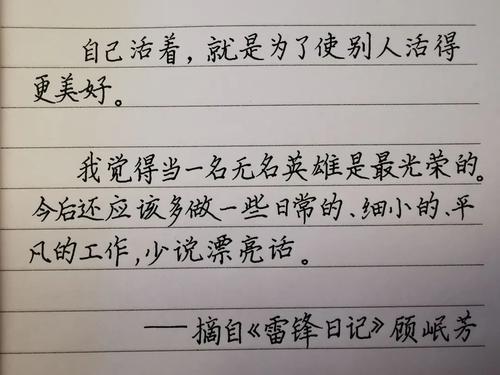 自己活着，就是为了使别人活得
更美好。
我觉得当一名无名英雄是最光荣的。
今后还应该多做一些日常的、细小的、平
凡的工作，少说漂亮话。
——摘自《雷锋日记》顾岷芳